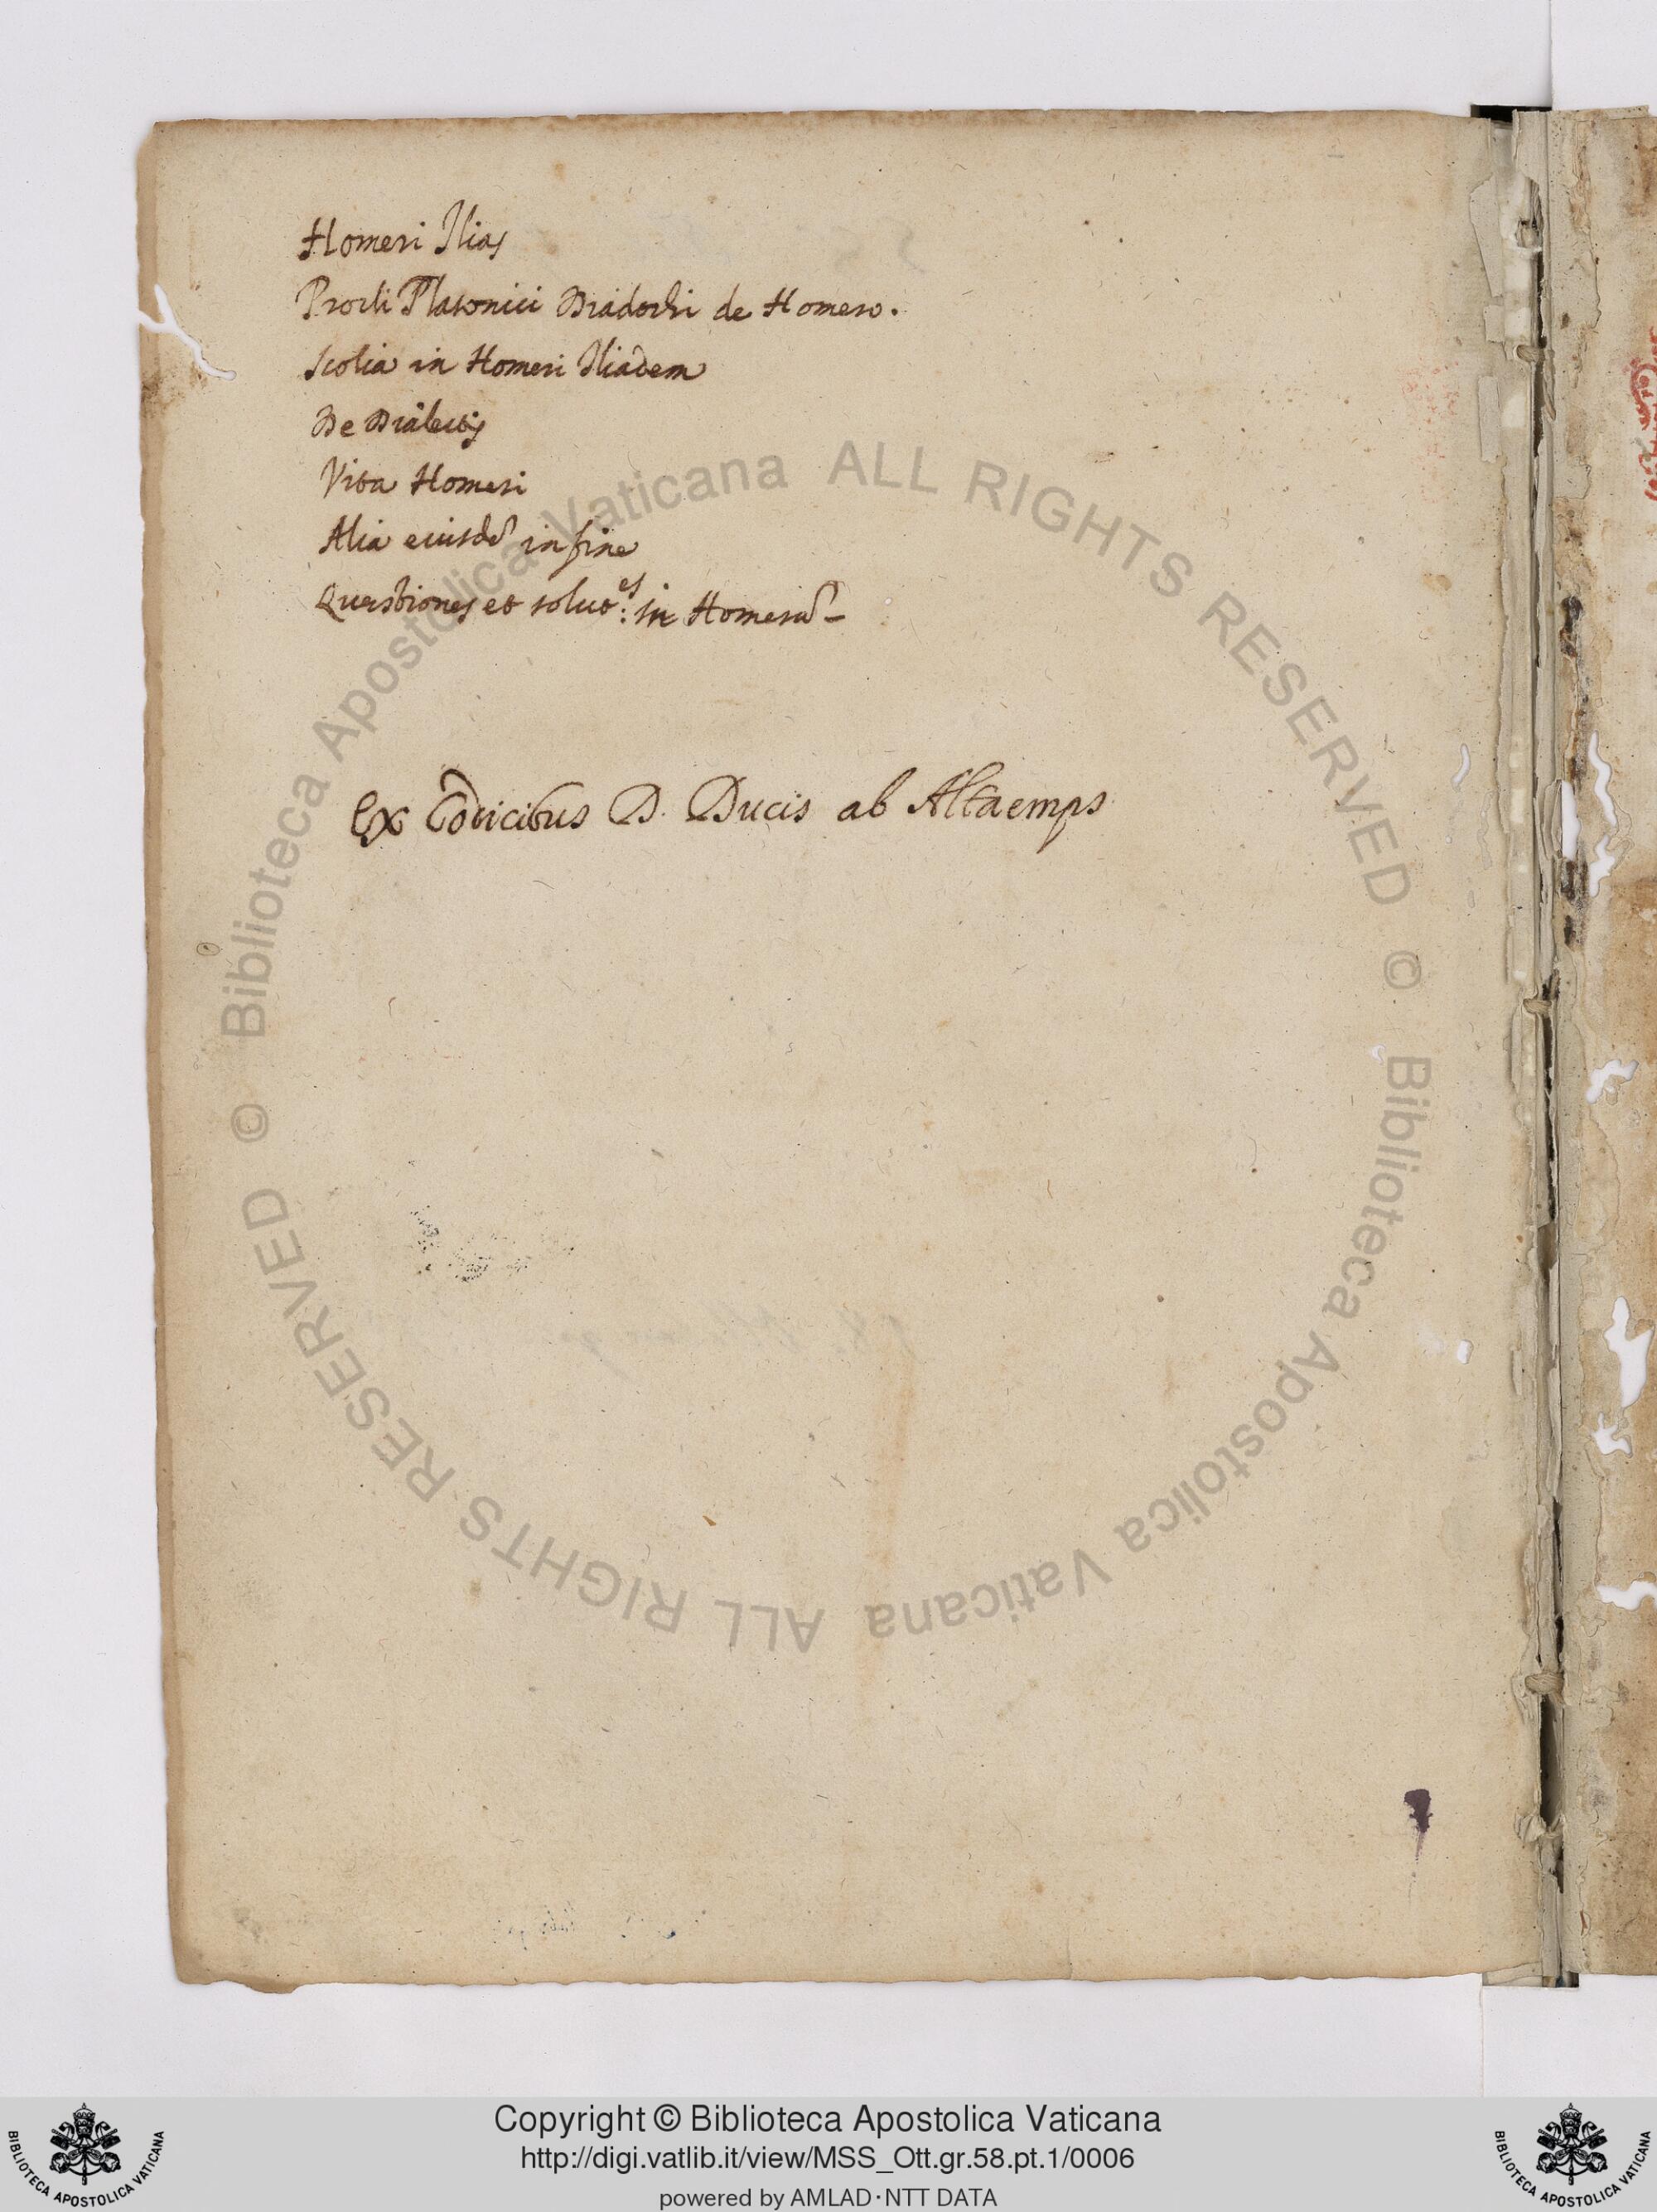 Homeri Ilias
Procli Platonici Diadochi de Homero.
Scolia in Homeri Iliadem
De Dialectis
Vita Homeri
Alia eiusdẽ in fine
Quæstiones et solut:es in Homerũ-
Ex Codicibus D. Ducis ab Altaemps
© Biblioteca Apostolica Vaticana ALL RIGHTS RESERVED
© Biblioteca Apostolica Vaticana ALL RIGHTS RESERVED
BIBLIOTECA APOSTOLICA VATICANA
Copyright © Biblioteca Apostolica Vaticana
http://digi.vatlib.it/view/MSS_Ott.gr.58.pt.1/0006
powered by AMLAD·NTT DATA
BIBLIOTECA APOSTOLICA VATICANA